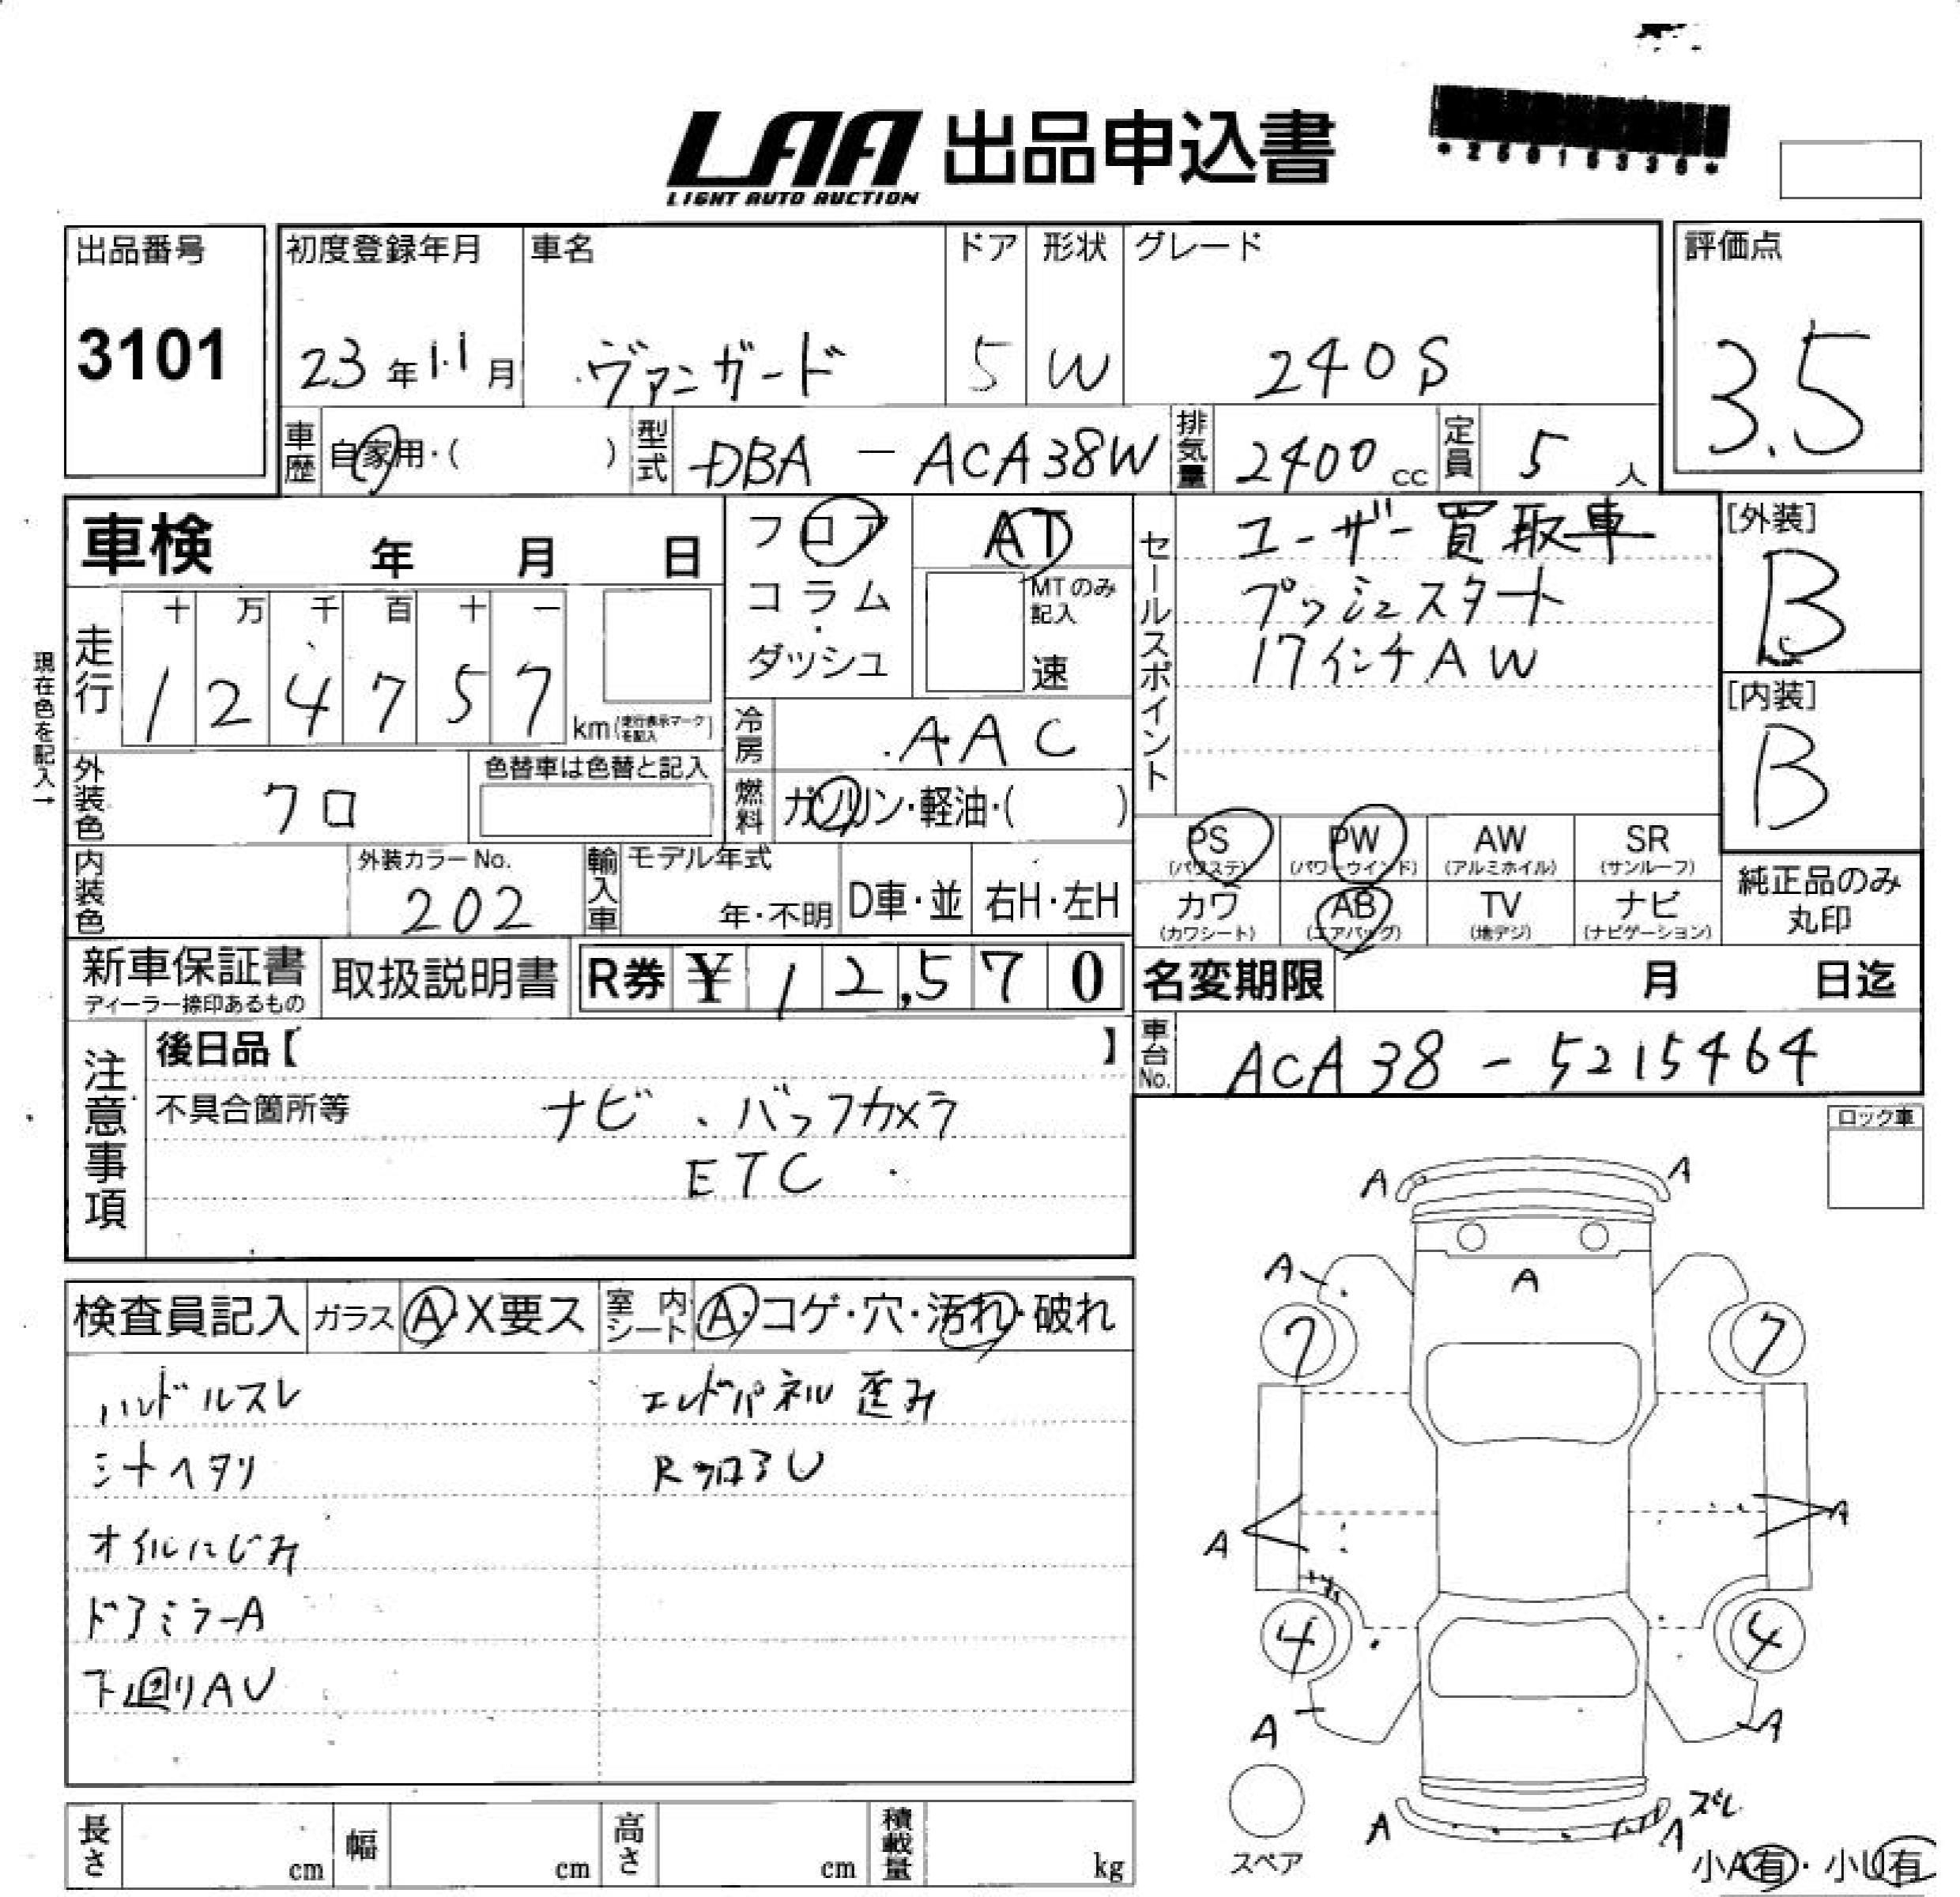 LAA 出品申込書
LIGHT AUTO AUCTION
出品番号
3101
初度登録年月
23年11月
車名
ヴァンガード
ドア
5
形状
W
グレード
240S
評価点
3.5
車歴
自家用・( )
型式
DBA - ACA38W
排気量
2400 cc
定員
5 人
車検 年 月 日
フロア
コラム・
ダッシュ
AT
MTのみ
記入
速
セールスポイント
ユーザー買取車
プッシュスタート
17インチAW
[外装]
B
[内装]
B
現在色を記入→
走行
十 万 千 百 十 一
1 2 4 7 5 7
km(走行表示マークを記入)
冷房
AAC
燃料
ガソリン・軽油・( )
外装色
クロ
色替車は色替と記入
内装色
外装カラーNo.
202
輸入車
モデル年式
年・不明
D車・並
右H・左H
PS
(パワステ)
PW
(パワーウインド)
AW
(アルミホイル)
SR
(サンルーフ)
カワ
(カワシート)
AB
(エアバッグ)
TV
(地デジ)
ナビ
(ナビゲーション)
純正品のみ
丸印
新車保証書
ディーラー捺印あるもの
取扱説明書
R券 ¥ 12,570
名変期限 月 日迄
車台No.
ACA38-5215464
注意事項
後日品【 】
不具合箇所等
ナビ、バックカメラ
ETC
ロック車
検査員記入
ガラス
A・X要ス
室内シート
A・コゲ・穴・汚れ・破れ
ハンドルスレ
シートヘタリ
オイルにじみ
ドアミラーA
下廻りAU
エンドパネル歪み
RフロアU
A A
A
A
7 7
A A
4 4
A A
A
ズレ
A
スペア
小A有・小U有
長さ cm
幅 cm
高さ cm
積載量 kg